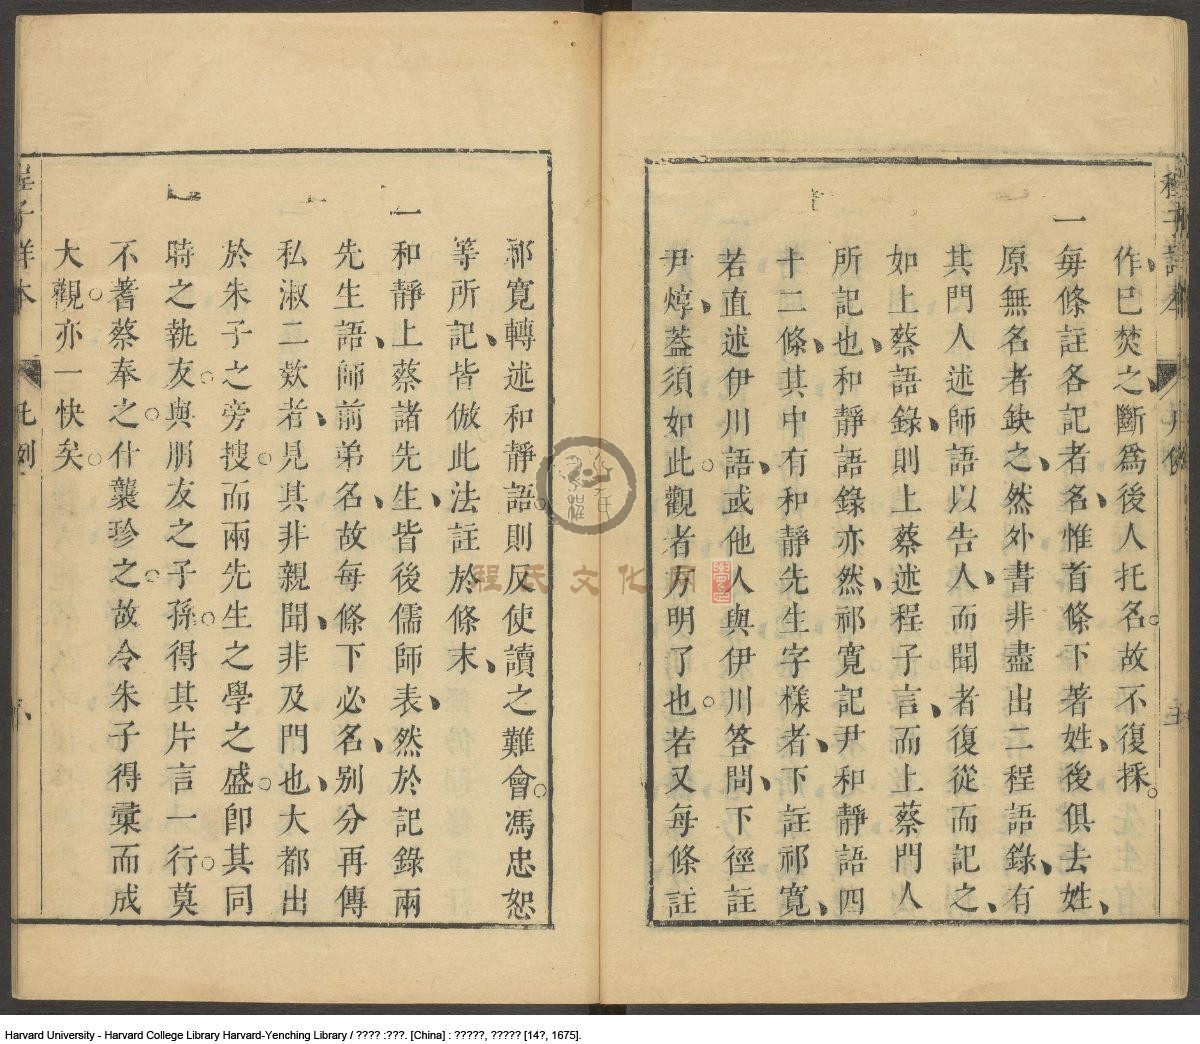 作已焚之斷爲後人托名故不復採
一每條註各記者名惟首條下著姓後俱去姓
原無名者缺之然外書非盡出二程語錄有
其門人述師語以告人而聞者復從而記之
如上蔡語錄則上蔡述程子言而上蔡門人
所記也和靜語錄亦然祁寬記尹和靜語四
十二條其中有和靜先生字樣者下註祁寬
若直述伊川語或他人與伊川答問下徑註
尹焞蓋須如此觀者方明了也若又每條註
祁寛轉述和靜語則反使讀之難會馮忠恕
等所記皆倣此法註於條末
一和靜上蔡諸先生皆後儒師表然於記錄兩
先生語師前弟名故每條下必名别分再傳
私淑二欵者見其非親聞非及門也大都出
於朱子之旁搜而兩先生之學之盛卽其同
時之執友與朋友之子孫得其片言一行莫
不蓍蔡奉之什襲珍之故令朱子得彙而成
大觀亦一快矣
程子詳本
凡例
程氏文化网
Harvard University - Harvard College Library Harvard-Yenching Library / ???? :???. [China] : ?????, ????? [14?, 1675].